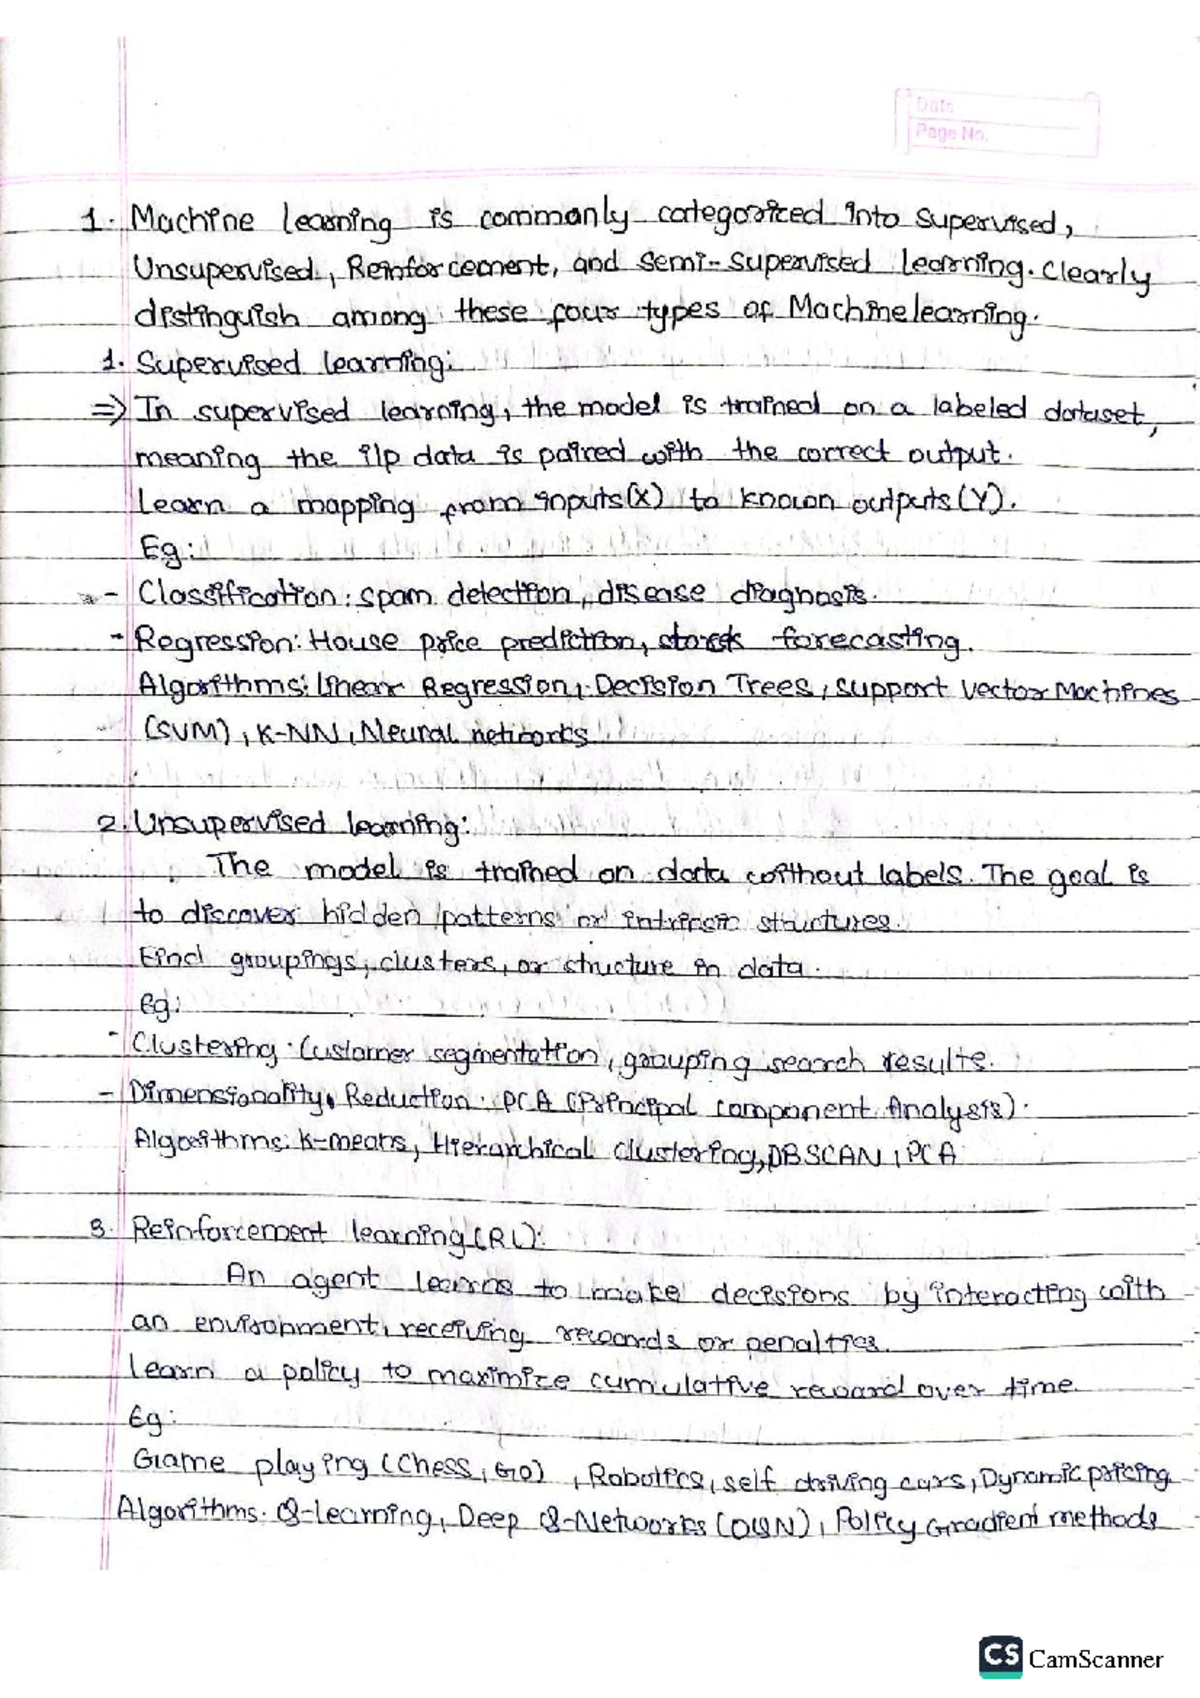 Date
Page No.
1. Machine learning is commonly categorized into supervised,
Unsupervised, Reinforcement, and semi-supervised learning. Clearly
distinguish among these four types of Machine learning.
1. Supervised learning:
⇒ In supervised learning, the model is trained on a labeled dataset,
meaning the i/p data is paired with the correct output.
Learn a mapping from inputs(X) to known outputs(Y).
Eg:
- Classification: spam detection, disease diagnosis.
- Regression: House price prediction, stock forecasting.
Algorithms: linear Regression, Decision Trees, support vector Machines
(SVM), K-NN, Neural networks
2. Unsupervised learning:
The model is trained on data without labels. The goal is
to discover hidden patterns or intrinsic structures.
Find groupings, clusters, or structure in data.
Eg:
- Clustering: Customer segmentation, grouping search results.
- Dimensionality Reduction: PCA (Principal component Analysis).
Algorithms: K-means, Hierarchical clustering, DBSCAN, PCA
3. Reinforcement learning (RL):
An agent learns to make decisions by interacting with
an environment, receiving rewards or penalties.
Learn a policy to maximize cumulative reward over time.
Eg:
Game playing (Chess, GO), Robotics, self driving cars, Dynamic pricing
Algorithms: Q-learning, Deep Q-Networks (DQN), Policy Gradient methods
CS CamScanner